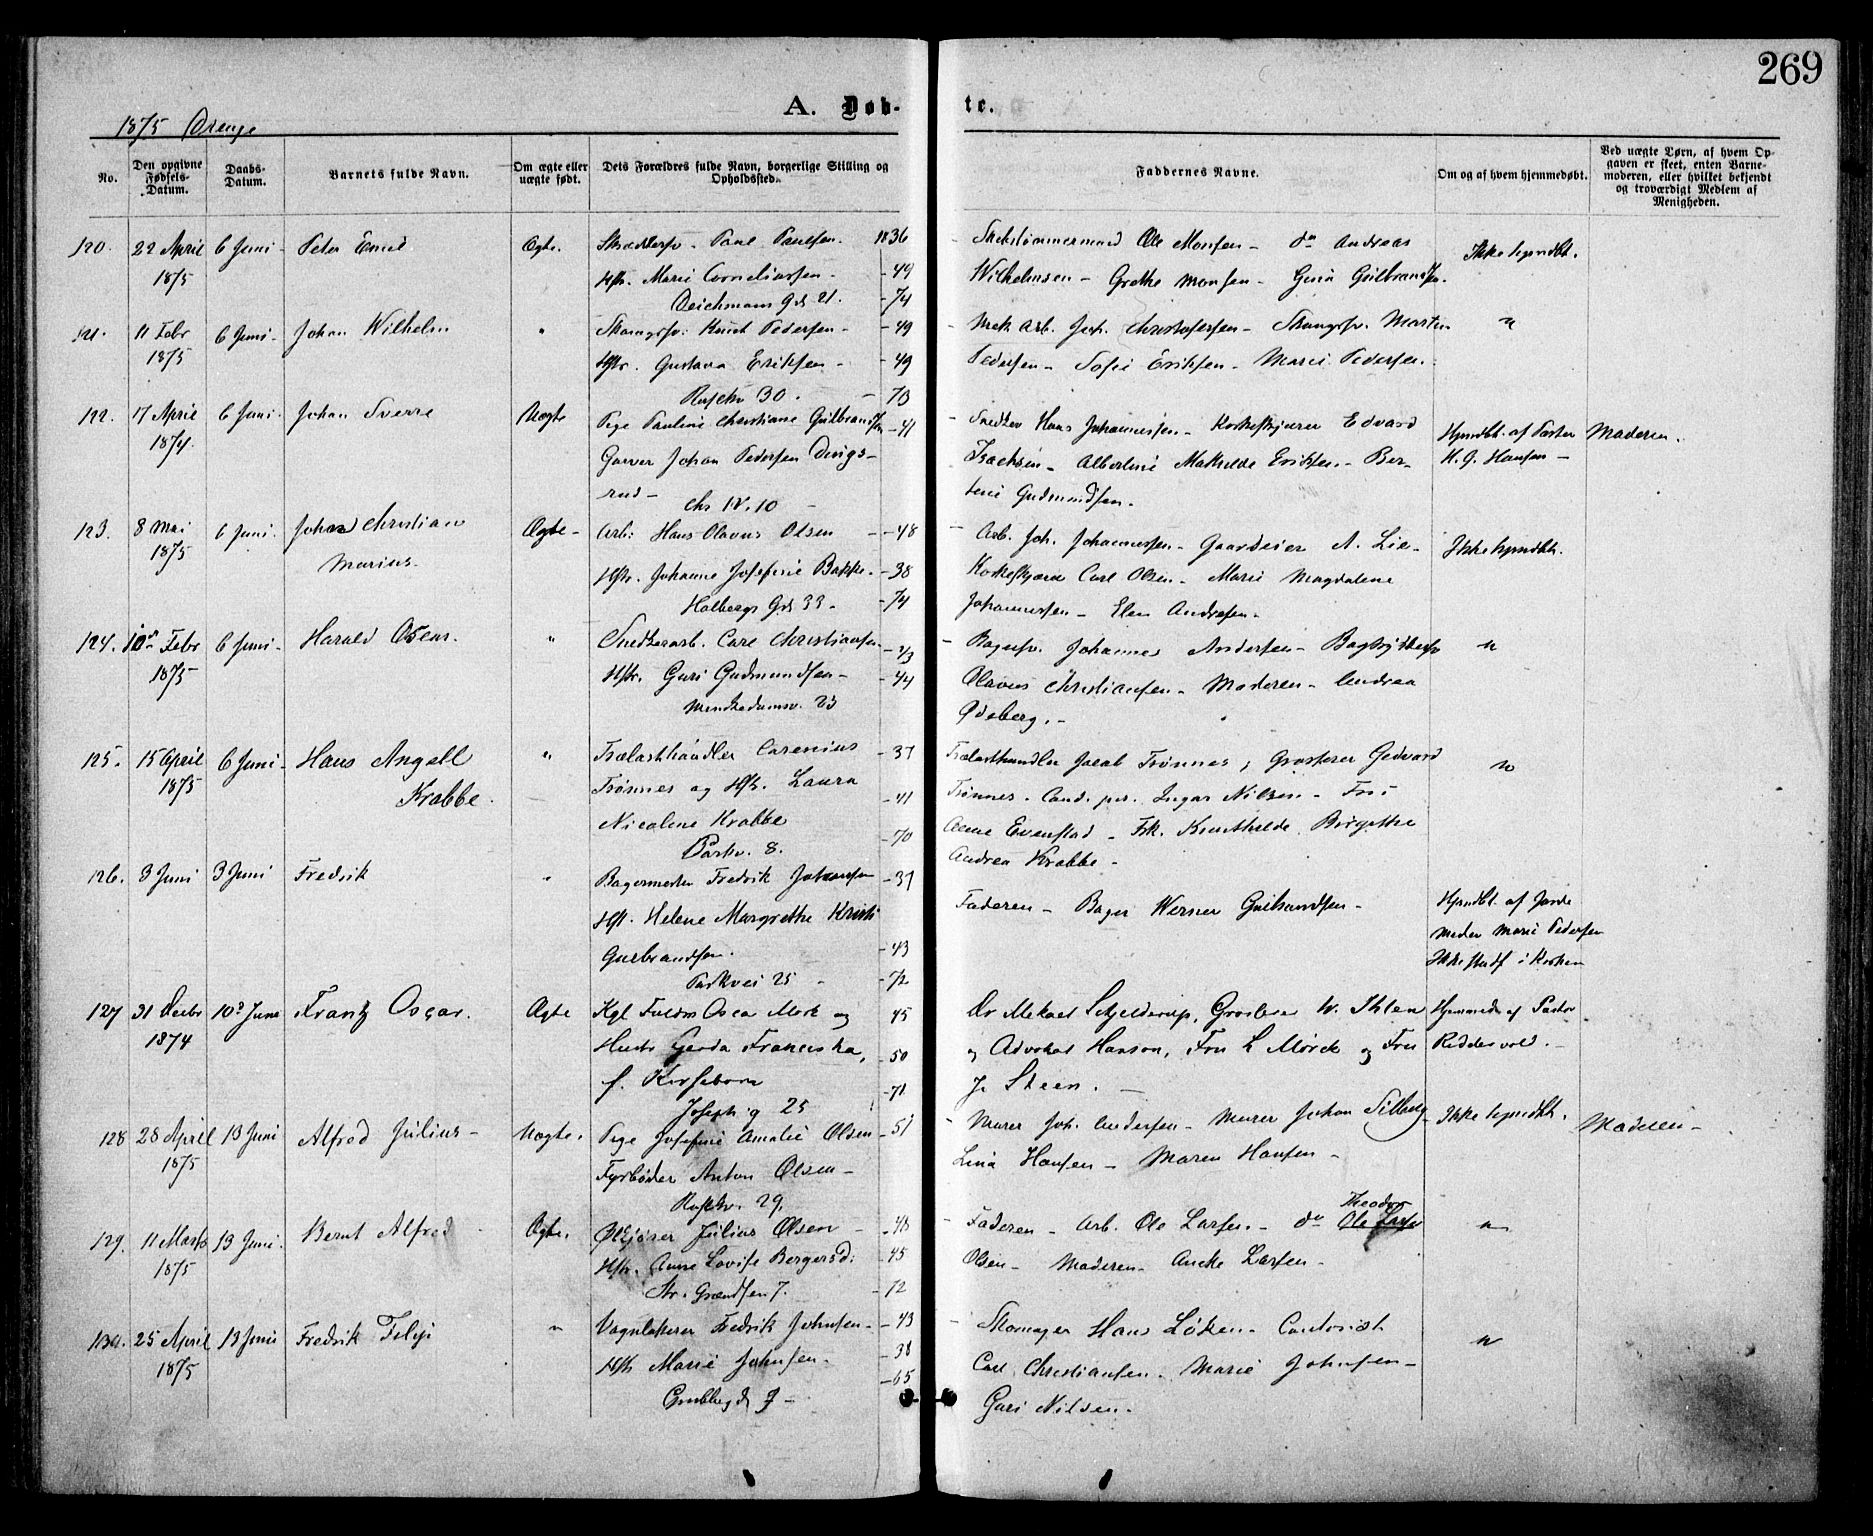 269
A. Døb-
te.
1875 Drenge
No.
Den opgivne Fødsels-Datum.
Daabs-Datum.
Barnets fulde Navn.
Om ægte eller uægte født.
Dets Forældres fulde Navn, borgerlige Stilling og Opholdssted.
Faddernes Navne.
Om og af hvem hjemmedøbt.
Ved uægte Børn, af hvem Opgaven er skeet, enten Barnemoderen, eller hvilket bekjendt og troværdigt Medlem af Menigheden.
120. 22 April 6 Juni - Peter Emil Ægte. Paul Paulsen. 1836 Ole Monsen - do Andreas Ikke hjemdbt.
1875 Hstr. Marie Corneliussen - - 49 Wilhelmsen - Grethe Monsen - Gina Gulbrandsen.
Deichmans Gd. 21. - 74
121. 11 Febr 6 Juni - Johan Wilhelm " Knud Pedersen - - 49 - Mek Arb. Joh. Christofersen - Morten "
1875 Hstr. Gustava Eriksen - - 49 Pedersen - Sofie Eriksen - Marie Pedersen.
30. - 73
122. 17 April 6 Juni. Johan Sverre Uægte Pige Pauline Christiane Gulbrandsen - 41 - Snedker Hans Johannessen - Korkeskjærer Edvard Hjemdbt. af Pastor Moderen.
1874. Garver Johan Pedersen Dings- Isachsen - Albertine Mathilde Eriksen - Ber- H. G. Hansen -
rud - tine Gudmundsen.
10 -
123. 8 Mai 6 Juni. Johan Christian Ægte - Arb: Hans Olavus Olsen - - 48 - Arb. Joh. Johannessen - Gaardeier A. Lie - Ikke hjemdbt.
1875 Marius. Hstr. Johanne Josefine Bakke. - 38 Korkeskjærer Carl Olsen - Marie Magdalene
Holbergs Gd 33 - - 74 Johannessen - Elen Andresen.
124. 10de Febr 6 Juni - Harald Oscar. " Snedkerarb. Carl Christiansen - 43 - Johannes Andersen - "
1875 Hstr. Guri Gudmundsen - - 44 Olavus Christiansen - Moderen - Andrea
Munkedamsv. 23 Ødeberg. -
125. 15 April 6 Juni - Hans Angell " Trælasthandler Carenius - 37 Trælasthandler Jacob Trønnes, Grosserer Gedvard "
1875 Krabbe. Trønnes og Hstr. Laura - 41 Trønnes - Cand. jur. Ingar Nilsen - Fru
Nicoline Krabbe - 70 Evenstad - Frk. Birgitte
Parkv. 8. Andrea Krabbe -
126. 3 Juni 3 Juni Fredrik " Bagermester Fredrik Johansen - 37 Faderen - Bager Werner Gulbrandsen - Hjemdbt. af Jorde
Hst. Helene Margrethe Kristi moder Marie Pedersen
Gulbrandsen. - 43 Ikke stadf i Kirken
Parkvei 25 - 72
127 31 Decbr 10de June Frantz Oscar. Ægte Kgl Fuldm Oscar Mörk og 45 Dr Mikael Schjelderup, Grosserer W. Ihlen Hjemmedr af Pastor
1874 Hustr Gerda Franciska, - 50 og Advokat Hansson, Fru L Mörck og Fru Riddervold. -
f. Kirsebom - 71 J. Steen. -
Joseph. g 25
128 28 April 13 Juni Alfred Julius - Uægte. Pige Josefine Amalie Olsen - 51 - Murer Joh. Andersen - Murer Johan - Ikke hjemdbt. Moderen -
1875 Fyrbøder Anton Olsen - Lina Hansen - Maren Hansen -
29.
129. 11 Marts 13 Juni. Bernt Alfred - Ægte. Julius Olsen - - 48 - Faderen - Arb. Ole Larsen - do Theodor "
1875 Hstr. Anne Lovise Bergersd: - 45 Olsen - Moderen - Larsen -
7. - 72
130. 25 April 13 Juni Fredrik " Vognlakerer Fredrik Johnsen - - 43 - Skomager Hans Löken - Contorist "
1875 Hstr Marie Johnsen. - 38 Carl Christiansen - Marie Johnsen -
- 65 Guri Nilsen -